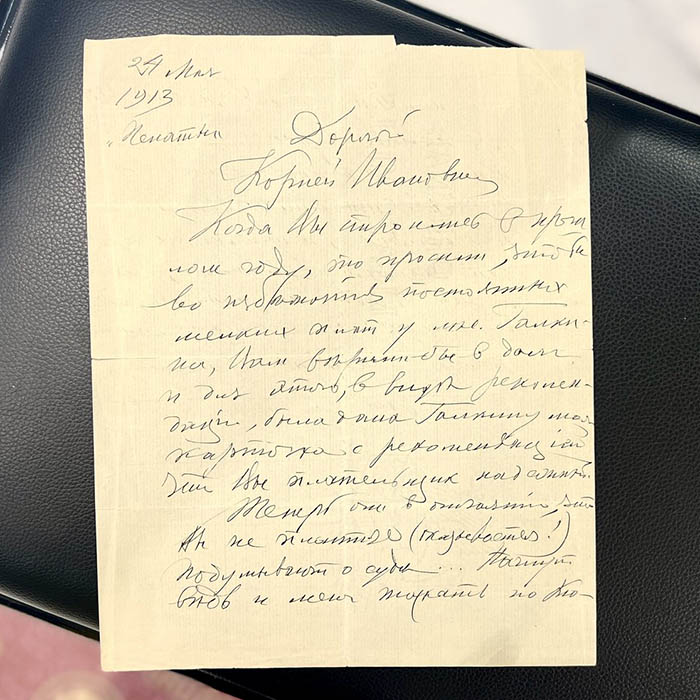 24 Мая
1913
"Пенаты"
Дорогой
Корней Иванович
Когда Вы строились в прош
лом году, то просили, чтобы
во избежание постоянных
мелких плат у мне. Галки-
на, Вам верили бы в долг
и для этого, в виде рекомен-
дации, была дана Галкину моя
карточка с рекомендацией
что Вы плательщик надежный.
Теперь они в отчаянии, что
Вы не платите (оказывается!)
подумывают о суде... Начнут
и меня таскать по